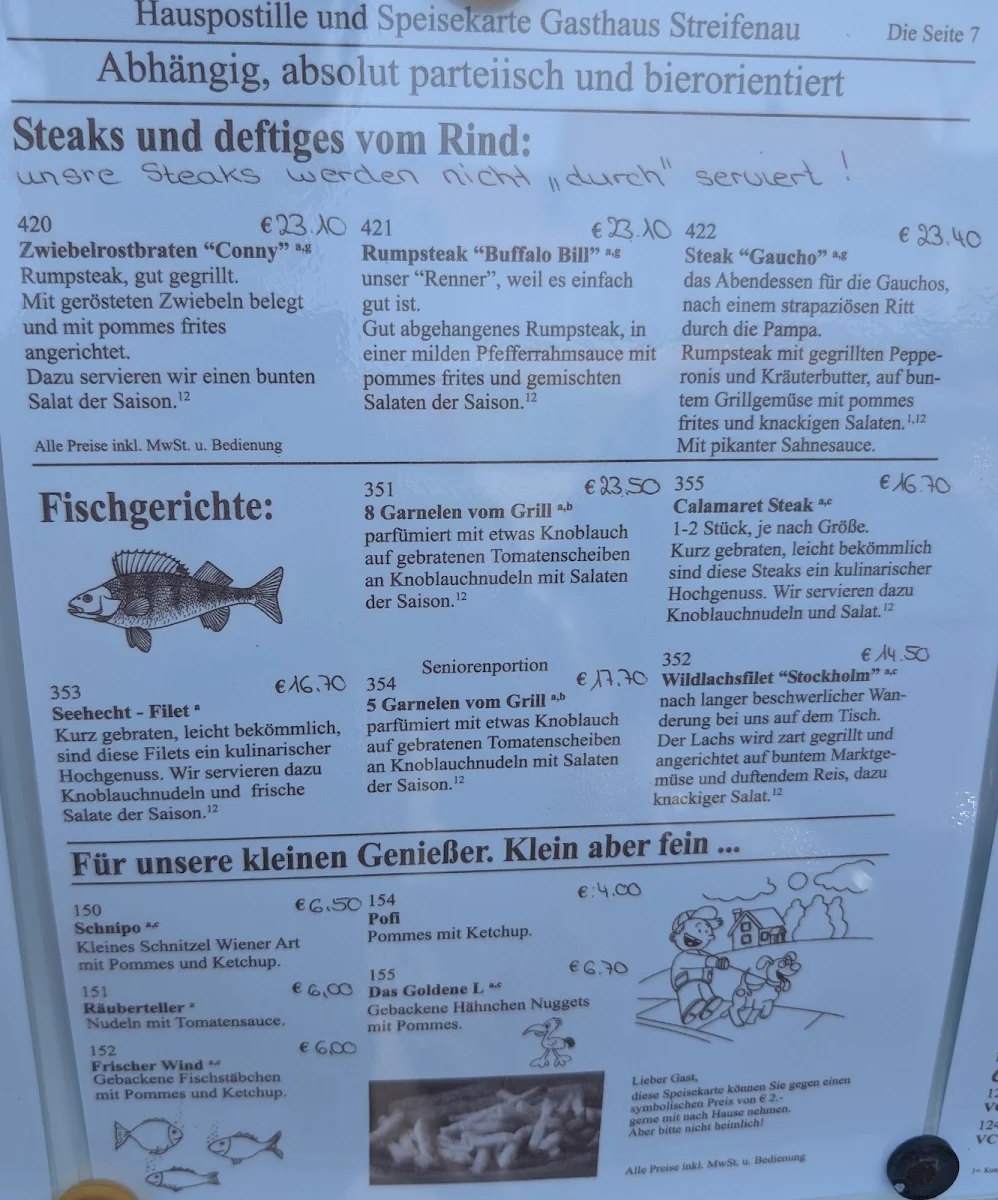 Hauspostille und Speisekarte Gasthaus Streifenau
Die Seite 7
Abhängig, absolut parteiisch und bierorientiert
Steaks und deftiges vom Rind:
unsre Steaks werden nicht „durch" serviert !
420 € 23.10
Zwiebelrostbraten “Conny” a,g
Rumpsteak, gut gegrillt.
Mit gerösteten Zwiebeln belegt
und mit pommes frites
angerichtet.
Dazu servieren wir einen bunten
Salat der Saison.12
Alle Preise inkl. MwSt. u. Bedienung
421 € 23.10
Rumpsteak “Buffalo Bill” a,g
unser “Renner”, weil es einfach
gut ist.
Gut abgehangenes Rumpsteak, in
einer milden Pfefferrahmsauce mit
pommes frites und gemischten
Salaten der Saison.12
422 € 23.40
Steak “Gaucho” a,g
das Abendessen für die Gauchos,
nach einem strapaziösen Ritt
durch die Pampa.
Rumpsteak mit gegrillten Peppe-
ronis und Kräuterbutter, auf bun-
tem Grillgemüse mit pommes
frites und knackigen Salaten.1,12
Mit pikanter Sahnesauce.
Fischgerichte:
351 € 23.50
8 Garnelen vom Grill a,b
parfümiert mit etwas Knoblauch
auf gebratenen Tomatenscheiben
an Knoblauchnudeln mit Salaten
der Saison.12
355 € 16.70
Calamaret Steak a,c
1-2 Stück, je nach Größe.
Kurz gebraten, leicht bekömmlich
sind diese Steaks ein kulinarischer
Hochgenuss. Wir servieren dazu
Knoblauchnudeln und Salat.12
353 € 16.70
Seehecht - Filet a
Kurz gebraten, leicht bekömmlich,
sind diese Filets ein kulinarischer
Hochgenuss. Wir servieren dazu
Knoblauchnudeln und frische
Salate der Saison.12
Seniorenportion
354 € 17.70
5 Garnelen vom Grill a,b
parfümiert mit etwas Knoblauch
auf gebratenen Tomatenscheiben
an Knoblauchnudeln mit Salaten
der Saison.12
352 € 14.50
Wildlachsfilet “Stockholm” a,c
nach langer beschwerlicher Wan-
derung bei uns auf dem Tisch.
Der Lachs wird zart gegrillt und
angerichtet auf buntem Marktge-
müse und duftendem Reis, dazu
knackiger Salat.12
Für unsere kleinen Genießer. Klein aber fein ...
150 € 6.50
Schnipo a,c
Kleines Schnitzel Wiener Art
mit Pommes und Ketchup.
151 € 6,00
Räuberteller a
Nudeln mit Tomatensauce.
152 € 6,00
Frischer Wind a,c
Gebackene Fischstäbchen
mit Pommes und Ketchup.
154 €:4.00
Pofi
Pommes mit Ketchup.
155 € 6.70
Das Goldene L a,c
Gebackene Hähnchen Nuggets
mit Pommes.
Lieber Gast,
diese Speisekarte können Sie gegen einen
symbolischen Preis von € 2.-
gerne mit nach Hause nehmen.
Aber bitte nicht heimlich!
Alle Preise inkl. MwSt. u. Bedienung